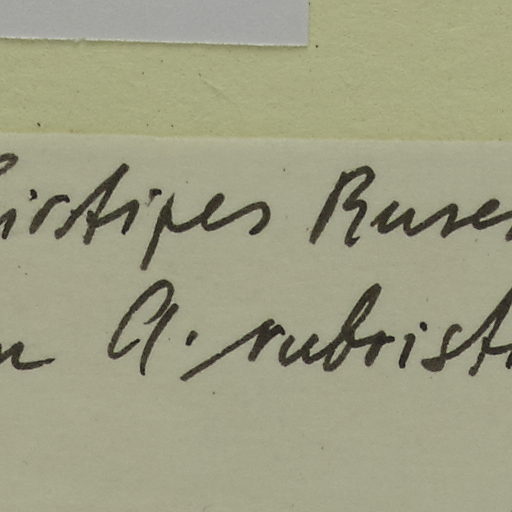 hirtipes Ruser
A. rubrist